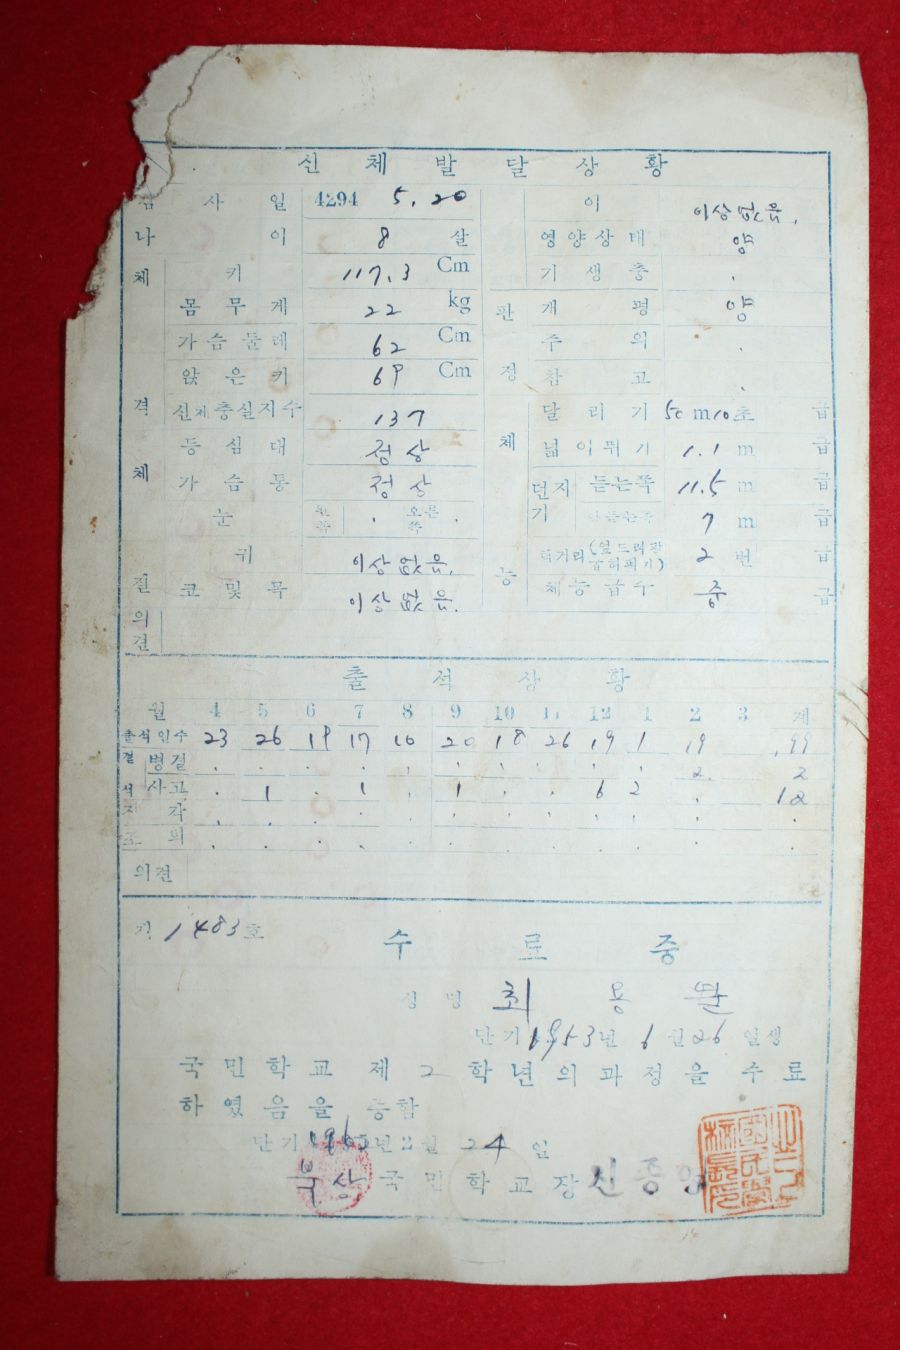 신체발달상황
검사일 4294 5. 20
나이 8 살
키 117.3 Cm
몸무게 22 kg
가슴둘레 62 Cm
앉은키 69 Cm
신체충실지수 137
등심대 정상
가슴통 정상
눈 왼쪽 . 오른쪽 .
귀 이상없음.
코및목 이상없음.
체격
체질
의견
이 이상없음.
영양상태 양
기생충 .
판정
개평 양
수의 .
참고 .
체능
달리기 50 m 10 초 급
넓이뛰기 1.1 m 급
던지기 듣는쪽 11.5 m 급
7 m 급
턱거리(엎드려팔굽히펴기) 2 번 급
체능급수 중 급
출석상황
월 4 5 6 7 8 9 10 11 12 1 2 3 계
출석인수 23 26 19 17 10 20 18 26 19 1 19 199
결석
병결 . . . . . . . . . . 2 2
사고 . 1 . 1 . 1 . . 6 2 . 12
지각
조퇴
의견
제 1483 호
수료증
성명 최용
단기 1953년 6월 26일생
국민학교 제 2 학년의 과정을 수료
하였음을 증함
단기 196 년 2월 24일
북상 국민학교장 신종